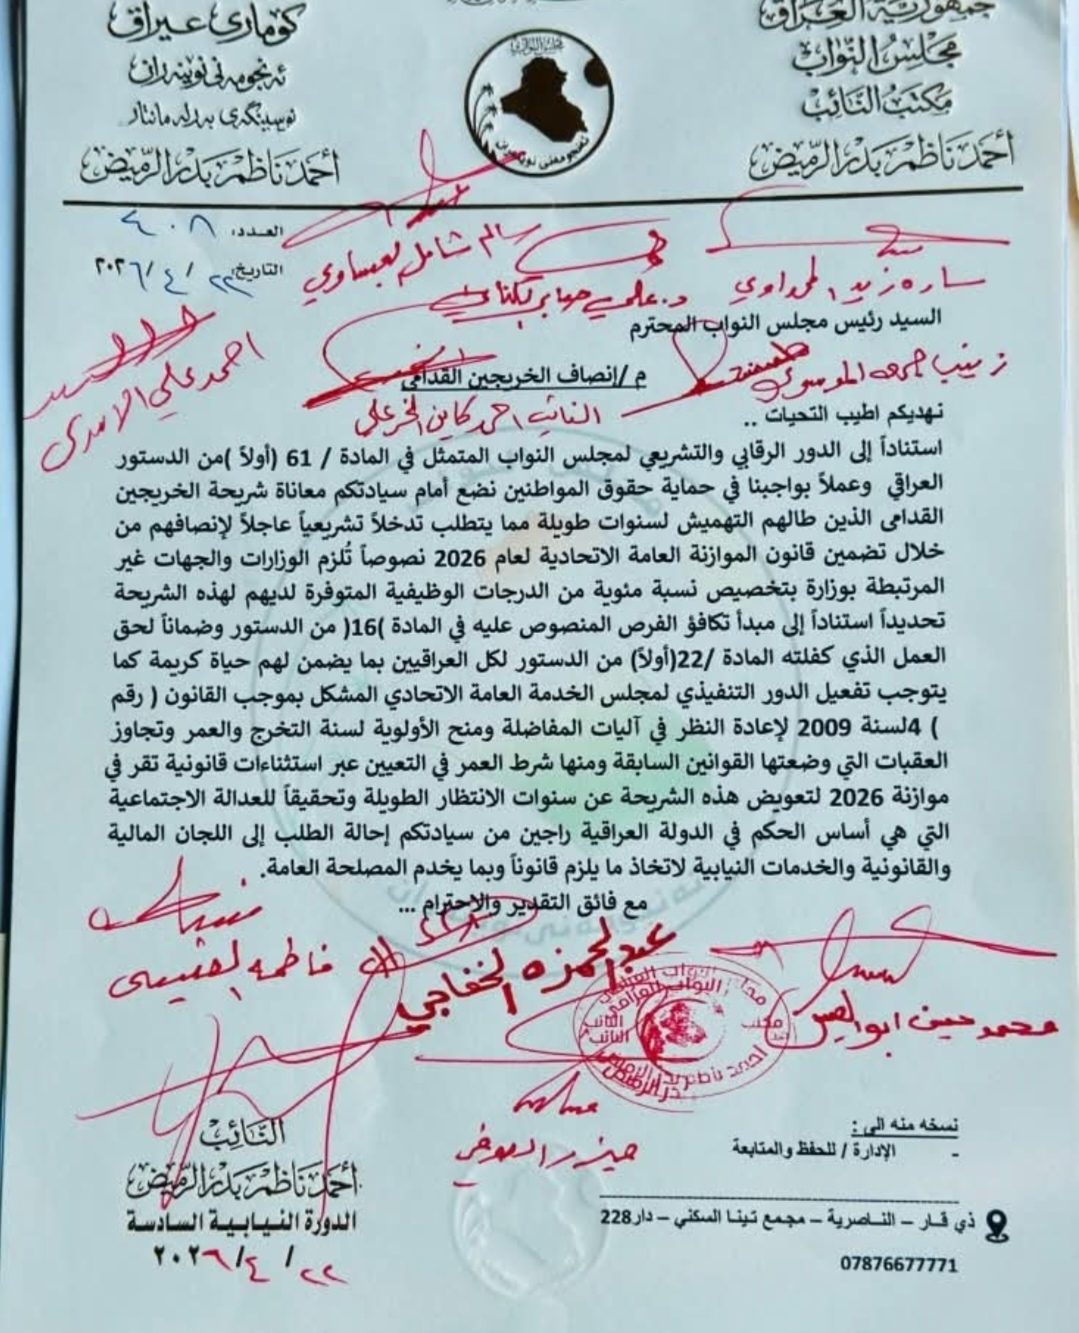 جمهورية العراق
مجلس النواب
مكتب النائب
أحمد ناظم بدر الرميض
كوماری عیراق
ئه نجومه نی نوینه ران
نوسینگه ی په رله مانتار
أحمد ناظم بدر الرميض
العدد: ٤٠٨
التاريخ: ٢٢/٤/٢٠٢٦
سالم شامل العيساوي
ساره زيد
د. علي صابر الكناني
السيد رئيس مجلس النواب المحترم
احمد علي الاسدي
زينب
م/إنصاف الخريجين القدامى
النائب احمد كاين الخزعلي
نهديكم اطيب التحيات ..
استناداً إلى الدور الرقابي والتشريعي لمجلس النواب المتمثل في المادة / 61 (أولاً )من الدستور
العراقي وعملاً بواجبنا في حماية حقوق المواطنين نضع أمام سيادتكم معاناة شريحة الخريجين
القدامى الذين طالهم التهميش لسنوات طويلة مما يتطلب تدخلاً تشريعياً عاجلاً لإنصافهم من
خلال تضمين قانون الموازنة العامة الاتحادية لعام 2026 نصوصاً تُلزم الوزارات والجهات غير
المرتبطة بوزارة بتخصيص نسبة مئوية من الدرجات الوظيفية المتوفرة لديهم لهذه الشريحة
تحديداً استناداً إلى مبدأ تكافؤ الفرص المنصوص عليه في المادة )16( من الدستور وضماناً لحق
العمل الذي كفلته المادة /22(أولاً) من الدستور لكل العراقيين بما يضمن لهم حياة كريمة كما
يتوجب تفعيل الدور التنفيذي لمجلس الخدمة العامة الاتحادي المشكل بموجب القانون ( رقم
) 4لسنة 2009 لإعادة النظر في آليات المفاضلة ومنح الأولوية لسنة التخرج والعمر وتجاوز
العقبات التي وضعتها القوانين السابقة ومنها شرط العمر في التعيين عبر استثناءات قانونية تقر في
موازنة 2026 لتعويض هذه الشريحة عن سنوات الانتظار الطويلة وتحقيقاً للعدالة الاجتماعية
التي هي أساس الحكم في الدولة العراقية راجين من سيادتكم إحالة الطلب إلى اللجان المالية
والقانونية والخدمات النيابية لاتخاذ ما يلزم قانوناً وبما يخدم المصلحة العامة.
مع فائق التقدير والاحترام ...
فاطمه
عبدالحمزه الخفاجي
محمد حسين ابو
حيدر
النائب
أحمد ناظم بدر الرميض
الدورة النيابية السادسة
٢٢/٤/٢٠٢٦
نسخه منه الى :
- الإدارة / للحفظ والمتابعة
ذي قار – الناصرية – مجمع تينا السكني – دار228
07876677771